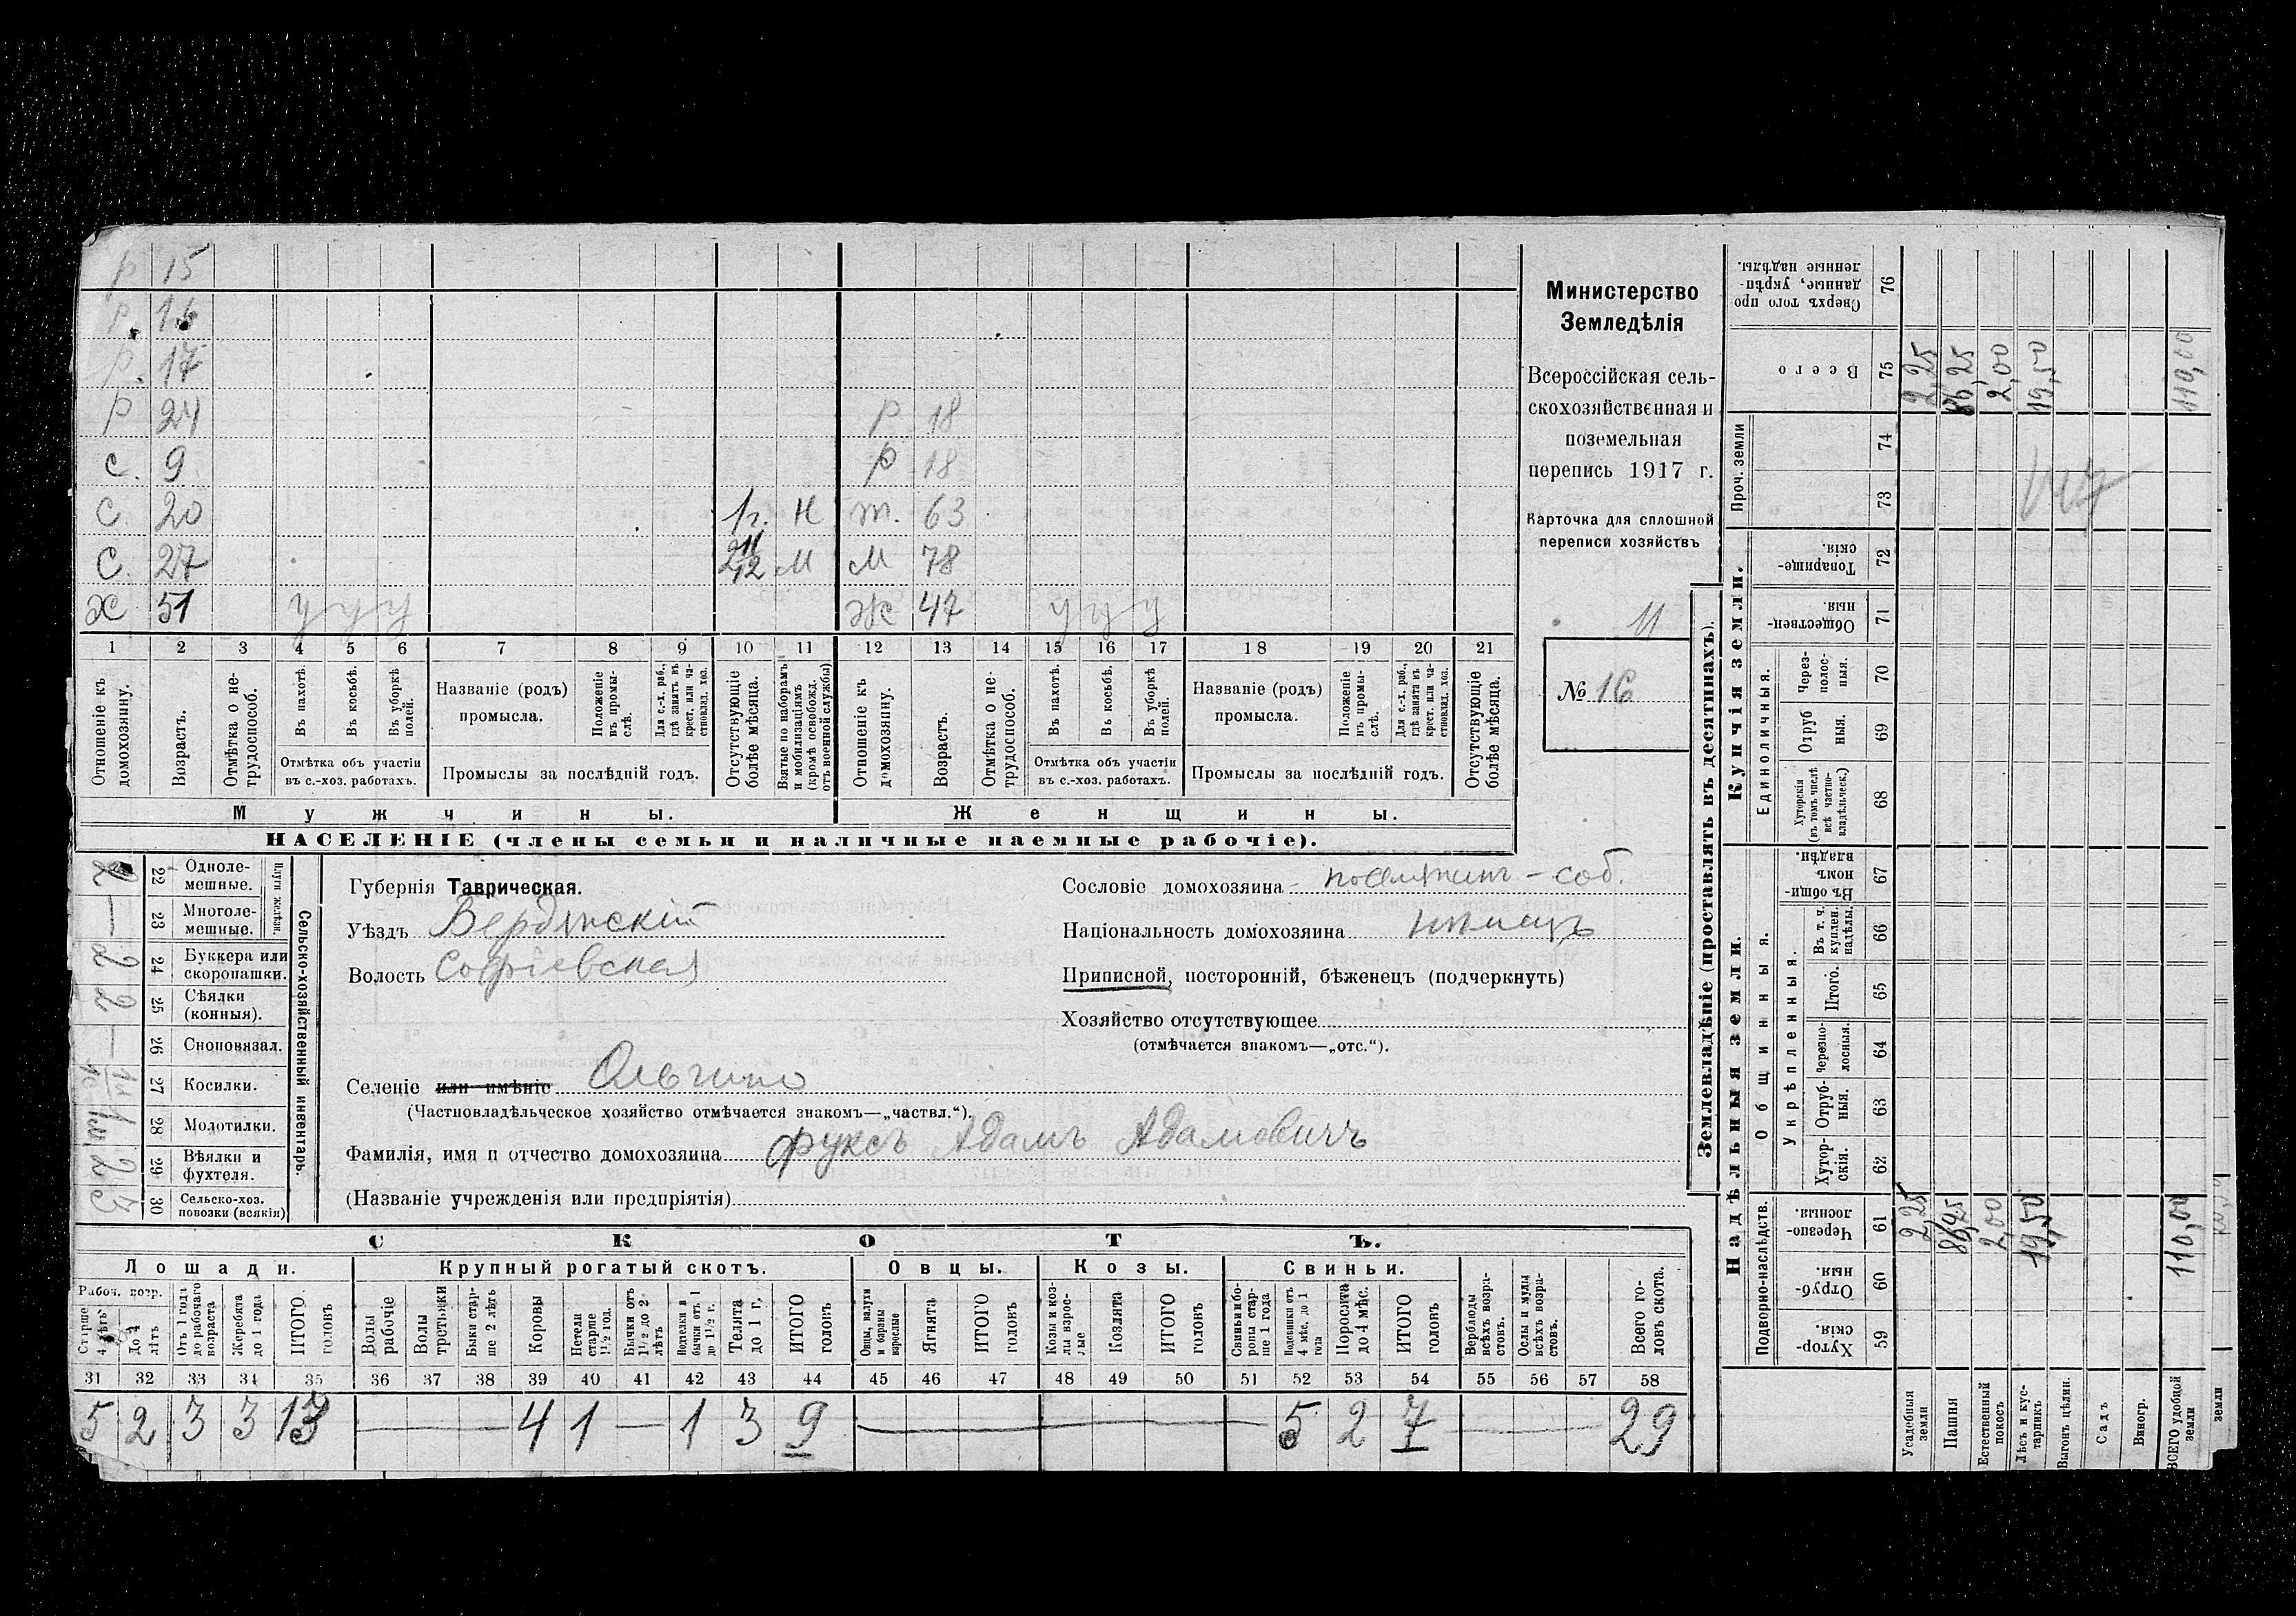 р 15
р. 16
р. 17
р 24 р 18
с. 9 р 18
с. 20 1г. Н т. 63
с. 27 М М 78
х 51 у у у ж 47 у у у
1 2 3 4 5 6 7 8 9 10 11 12 13 14 15 16 17 18 19 20 21
Отношеніе къ домохозяину.
Возрастъ.
Отмѣтка о не-трудоспособ.
Въ пахотѣ.
Въ косьбѣ.
Въ уборкѣ полей.
Отмѣтка объ участіи въ с.-хоз. работахъ.
Названіе (родъ) промысла.
Положеніе въ промы-слѣ.
Для с.-х. раб., гдѣ занятъ въ крест. или ча-стновлад. хоз.
Промыслы за послѣдній годъ.
Отсутствующіе болѣе мѣсяца.
Взятые по наборамъ и мобилизаціямъ (кромѣ освобожд. отъ военной службы)
Отношеніе къ домохозяину.
Возрастъ.
Отмѣтка о не-трудоспособ.
Въ пахотѣ.
Въ косьбѣ.
Въ уборкѣ полей.
Отмѣтка объ участіи въ с.-хоз. работахъ.
Названіе (родъ) промысла.
Положеніе въ промы-слѣ.
Для с.-х. раб., гдѣ занята въ крест. или ча-стновлад. хоз.
Промыслы за послѣдній годъ.
Отсутствующіе болѣе мѣсяца.
Мужчины. Женщины.
НАСЕЛЕНІЕ (члены семьи и наличные наемные рабочіе).
Министерство
Земледѣлія
Всероссійская сель-
скохозяйственная и
поземельная
перепись 1917 г.
Карточка для сплошной
переписи хозяйствъ
11
№ 16
Сельско-хозяйственный инвентарь.
Плуги желѣзн.
Одноле-мешные. 22 2
Многоле-мешные. 23 —
Буккера или скоропашки. 24 2
Сѣялки (конныя). 25 2
Сноповязал. 26 —
Косилки. 27
Молотилки. 28
Вѣялки и фухтеля. 29 2
Сельско-хоз. повозки (всякія) 30 3
Губернія Таврическая.
Уѣздъ Бердянскій
Волость Софіевская
Селеніе или имѣніе Ольгино
(Частновладѣльческое хозяйство отмѣчается знакомъ—„частвл.“).
Фамилія, имя и отчество домохозяина Фуксъ Адамъ Адамовичъ
(Названіе учрежденія или предпріятія)
Сословіе домохозяина поселянин – соб.
Національность домохозяина нѣмецъ
Приписной, посторонній, бѣженецъ (подчеркнуть)
Хозяйство отсутствующее
(отмѣчается знакомъ—„отс.“).
СКОТЪ.
Лошади. Крупный рогатый скотъ. Овцы. Козы. Свиньи.
Рабоч. возр.
Старше 4 лѣтъ
До 4 лѣтъ
Отъ 1 года до рабочаго возраста
Жеребята до 1 года
ИТОГО головъ
Волы рабочіе
Волы третьяки
Быки стар-ше 2 лѣтъ
Коровы
Нетели старше 1½ год.
Бычки отъ 1½ до 2 лѣтъ
Подтелки и бычки отъ 1 до 1½ г.
Телята до 1 г.
ИТОГО головъ
Овцы, валухи и бараны взрослые
Ягнята
ИТОГО головъ
Козы и коз-лы взрос-лые
Козлята
ИТОГО головъ
Свиньи и бо-ровы стар-ше 1 года
Подсвинки отъ 4 мѣс. до 1 года
Поросята до 4 мѣс.
ИТОГО головъ
Верблюды всѣхъ возра-стовъ.
Ослы и мулы всѣхъ возра-стовъ.
Всего го-ловъ скота.
31 32 33 34 35 36 37 38 39 40 41 42 43 44 45 46 47 48 49 50 51 52 53 54 55 56 57 58
5 2 3 3 13 — 4 1 — 1 3 9 — 5 2 7 — 29
Землевладѣніе (проставлять въ десятинахъ).
Надѣльныя земли. Купчія земли.
Подворно-наслѣдств.
Общинныя.
Укрѣпленныя.
Единоличныя.
Проч. земли
Хутор-скія. 59
Отруб-ныя. 60
Черезпо-лосныя. 61
Хутор-скія. 62
Отруб-ныя. 63
Черезпо-лосныя. 64
Итого. 65
Въ т. ч. куплен. надѣлы. 66
Въ общин-номъ владѣн. 67
Хуторскія (въ томъ числѣ всѣ частно-владѣльческ.) 68
Отруб ныя. 69
Через-полос-ныя. 70
Обществен-ныя. 71
Товарище-скія. 72
73
74
Всего 75
Сверхъ того про данные, укрѣп-ленные надѣлы. 76
Усадебныя земли 2,25 2,25
Пашня 86,25 86,25
Естественный покосъ 2,00 2,00
Лѣсъ и кус-тарникъ 19,50 19,50
Выгонъ цѣлин.
Садъ
Виногр.
ВСЕГО удобной земли 110,00 110,00
земли